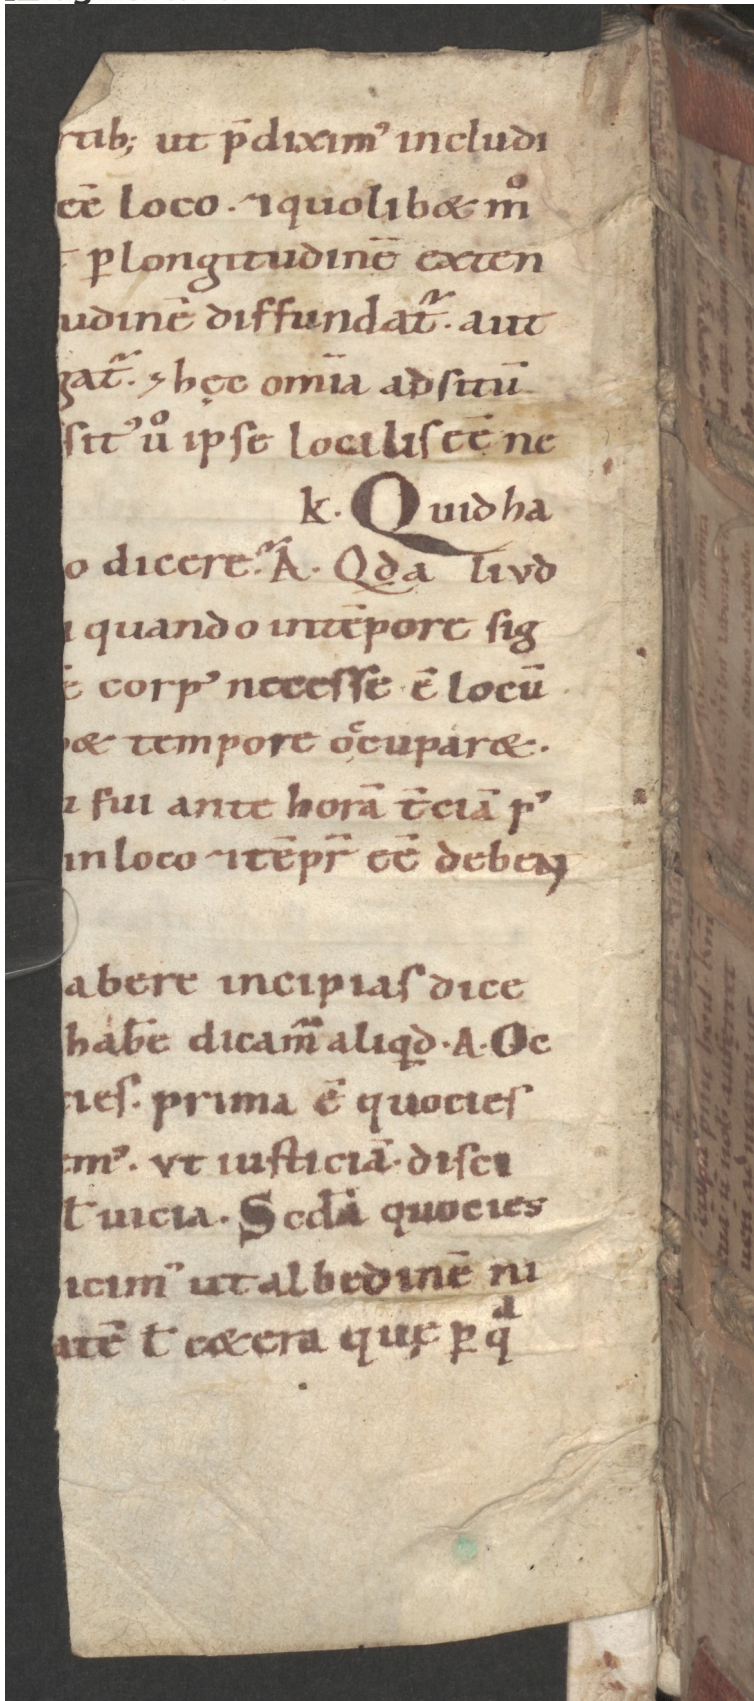 rtib; ut p̄dixim᾽ includi
eē loco. ⁊quolibꝫ mͦ
ꝑ longitudinē exten
udinē diffundat᷑. aut
gat᷑. ⁊ hęc omīa ad sitū
sit᾽ uͦ ipse localis eē ne
k. Quid ha
o dicere᷑. A. Qda liud
quando intēpore sig
ē corp᾽ necesse ē locū
& tempore occupar&.
fui ante horā t̄ciā p᾽
in loco ⁊tēpr̄ eē deben
abere incipias dice
hab̄e dicam᷑ aliqd. A. Oc
ties. prima ē quocies
m᾽. vt iusticiā. disci
ł uicia. Scd̄a quocies
icim᾽ ut albedinē ni
atē ł c&era quę ꝑ qͣ